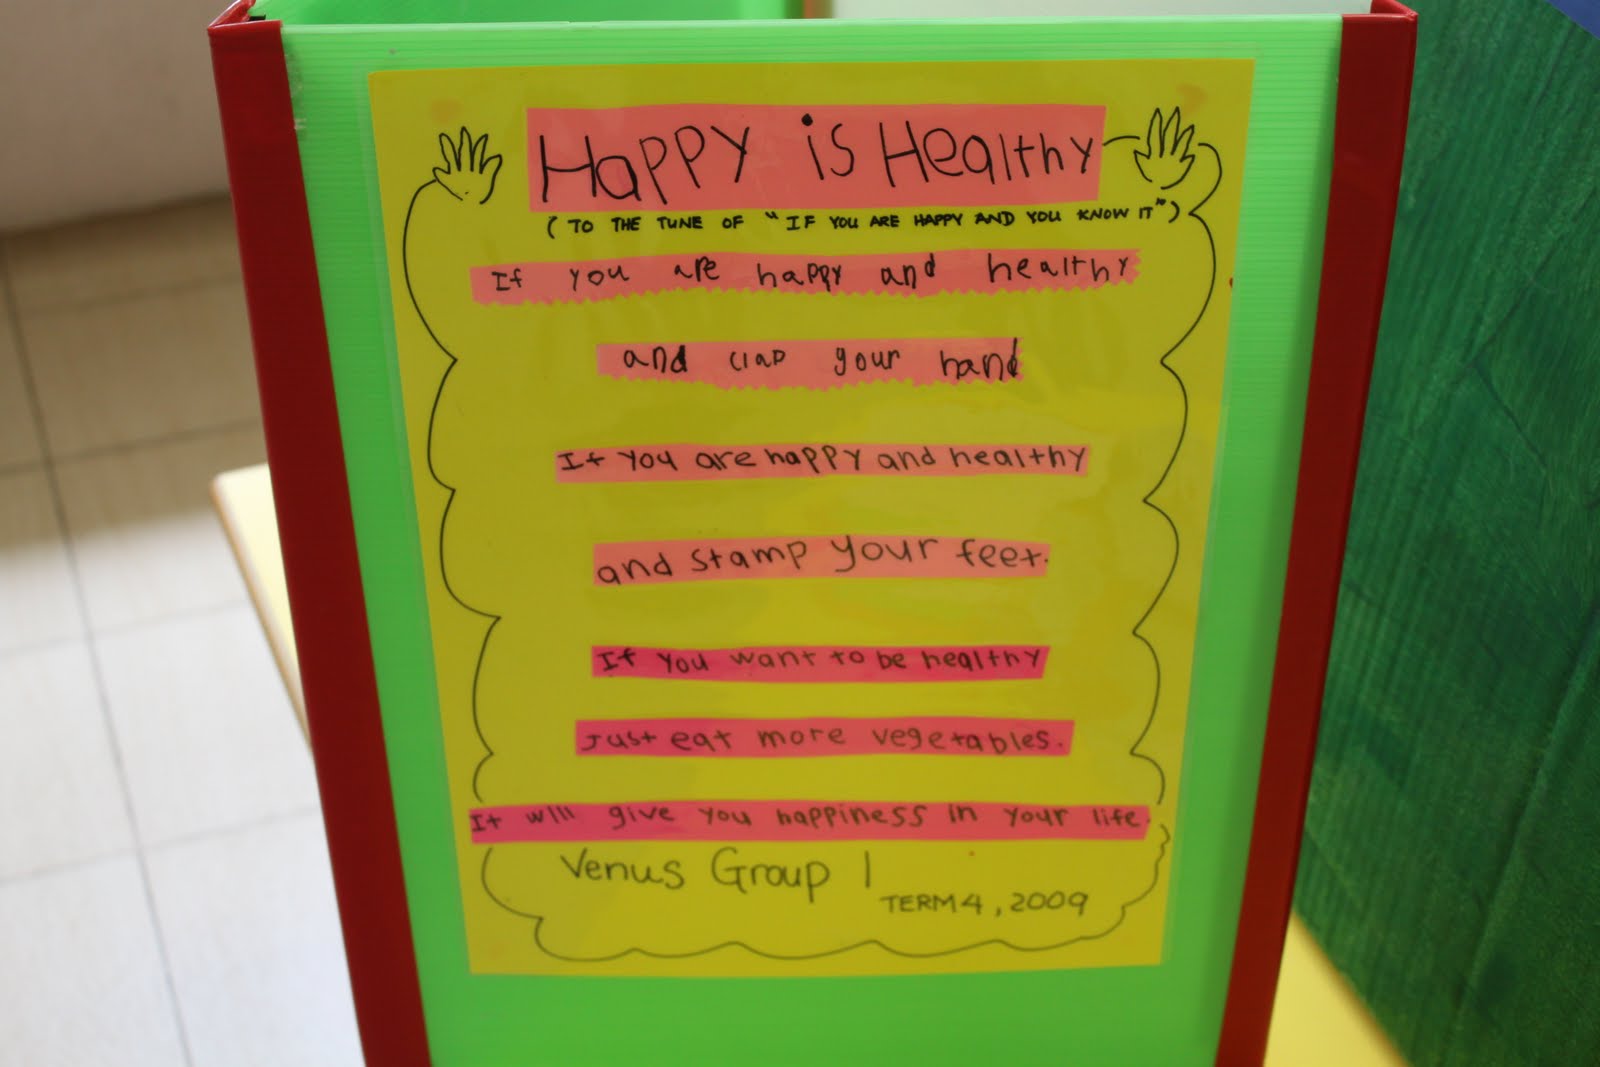 Happy is Healthy
( TO THE TUNE OF "IF YOU ARE HAPPY AND YOU KNOW IT")
If you are happy and healthy
and clap your hand
If you are happy and healthy
and stamp your feet.
If you want to be healthy
Just eat more vegetables.
It will give you happiness in your life.
Venus Group 1
TERM 4, 2009